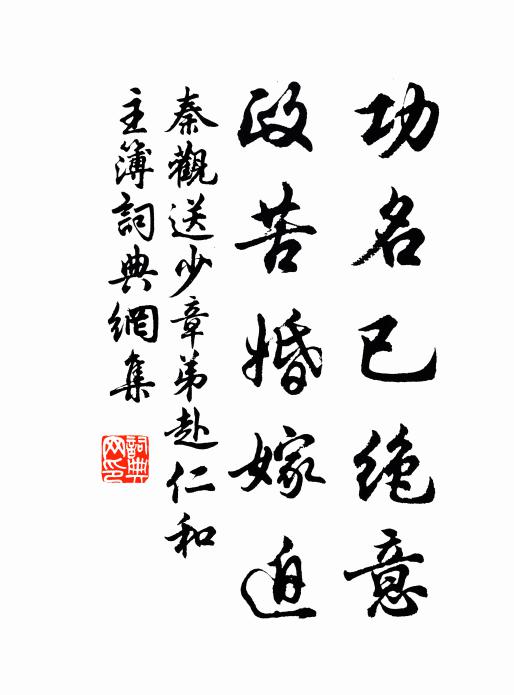 功名已絶意
政苦婚嫁迫
秦觀送少章弟赴仁和
主簿詞典網集
詞典网印